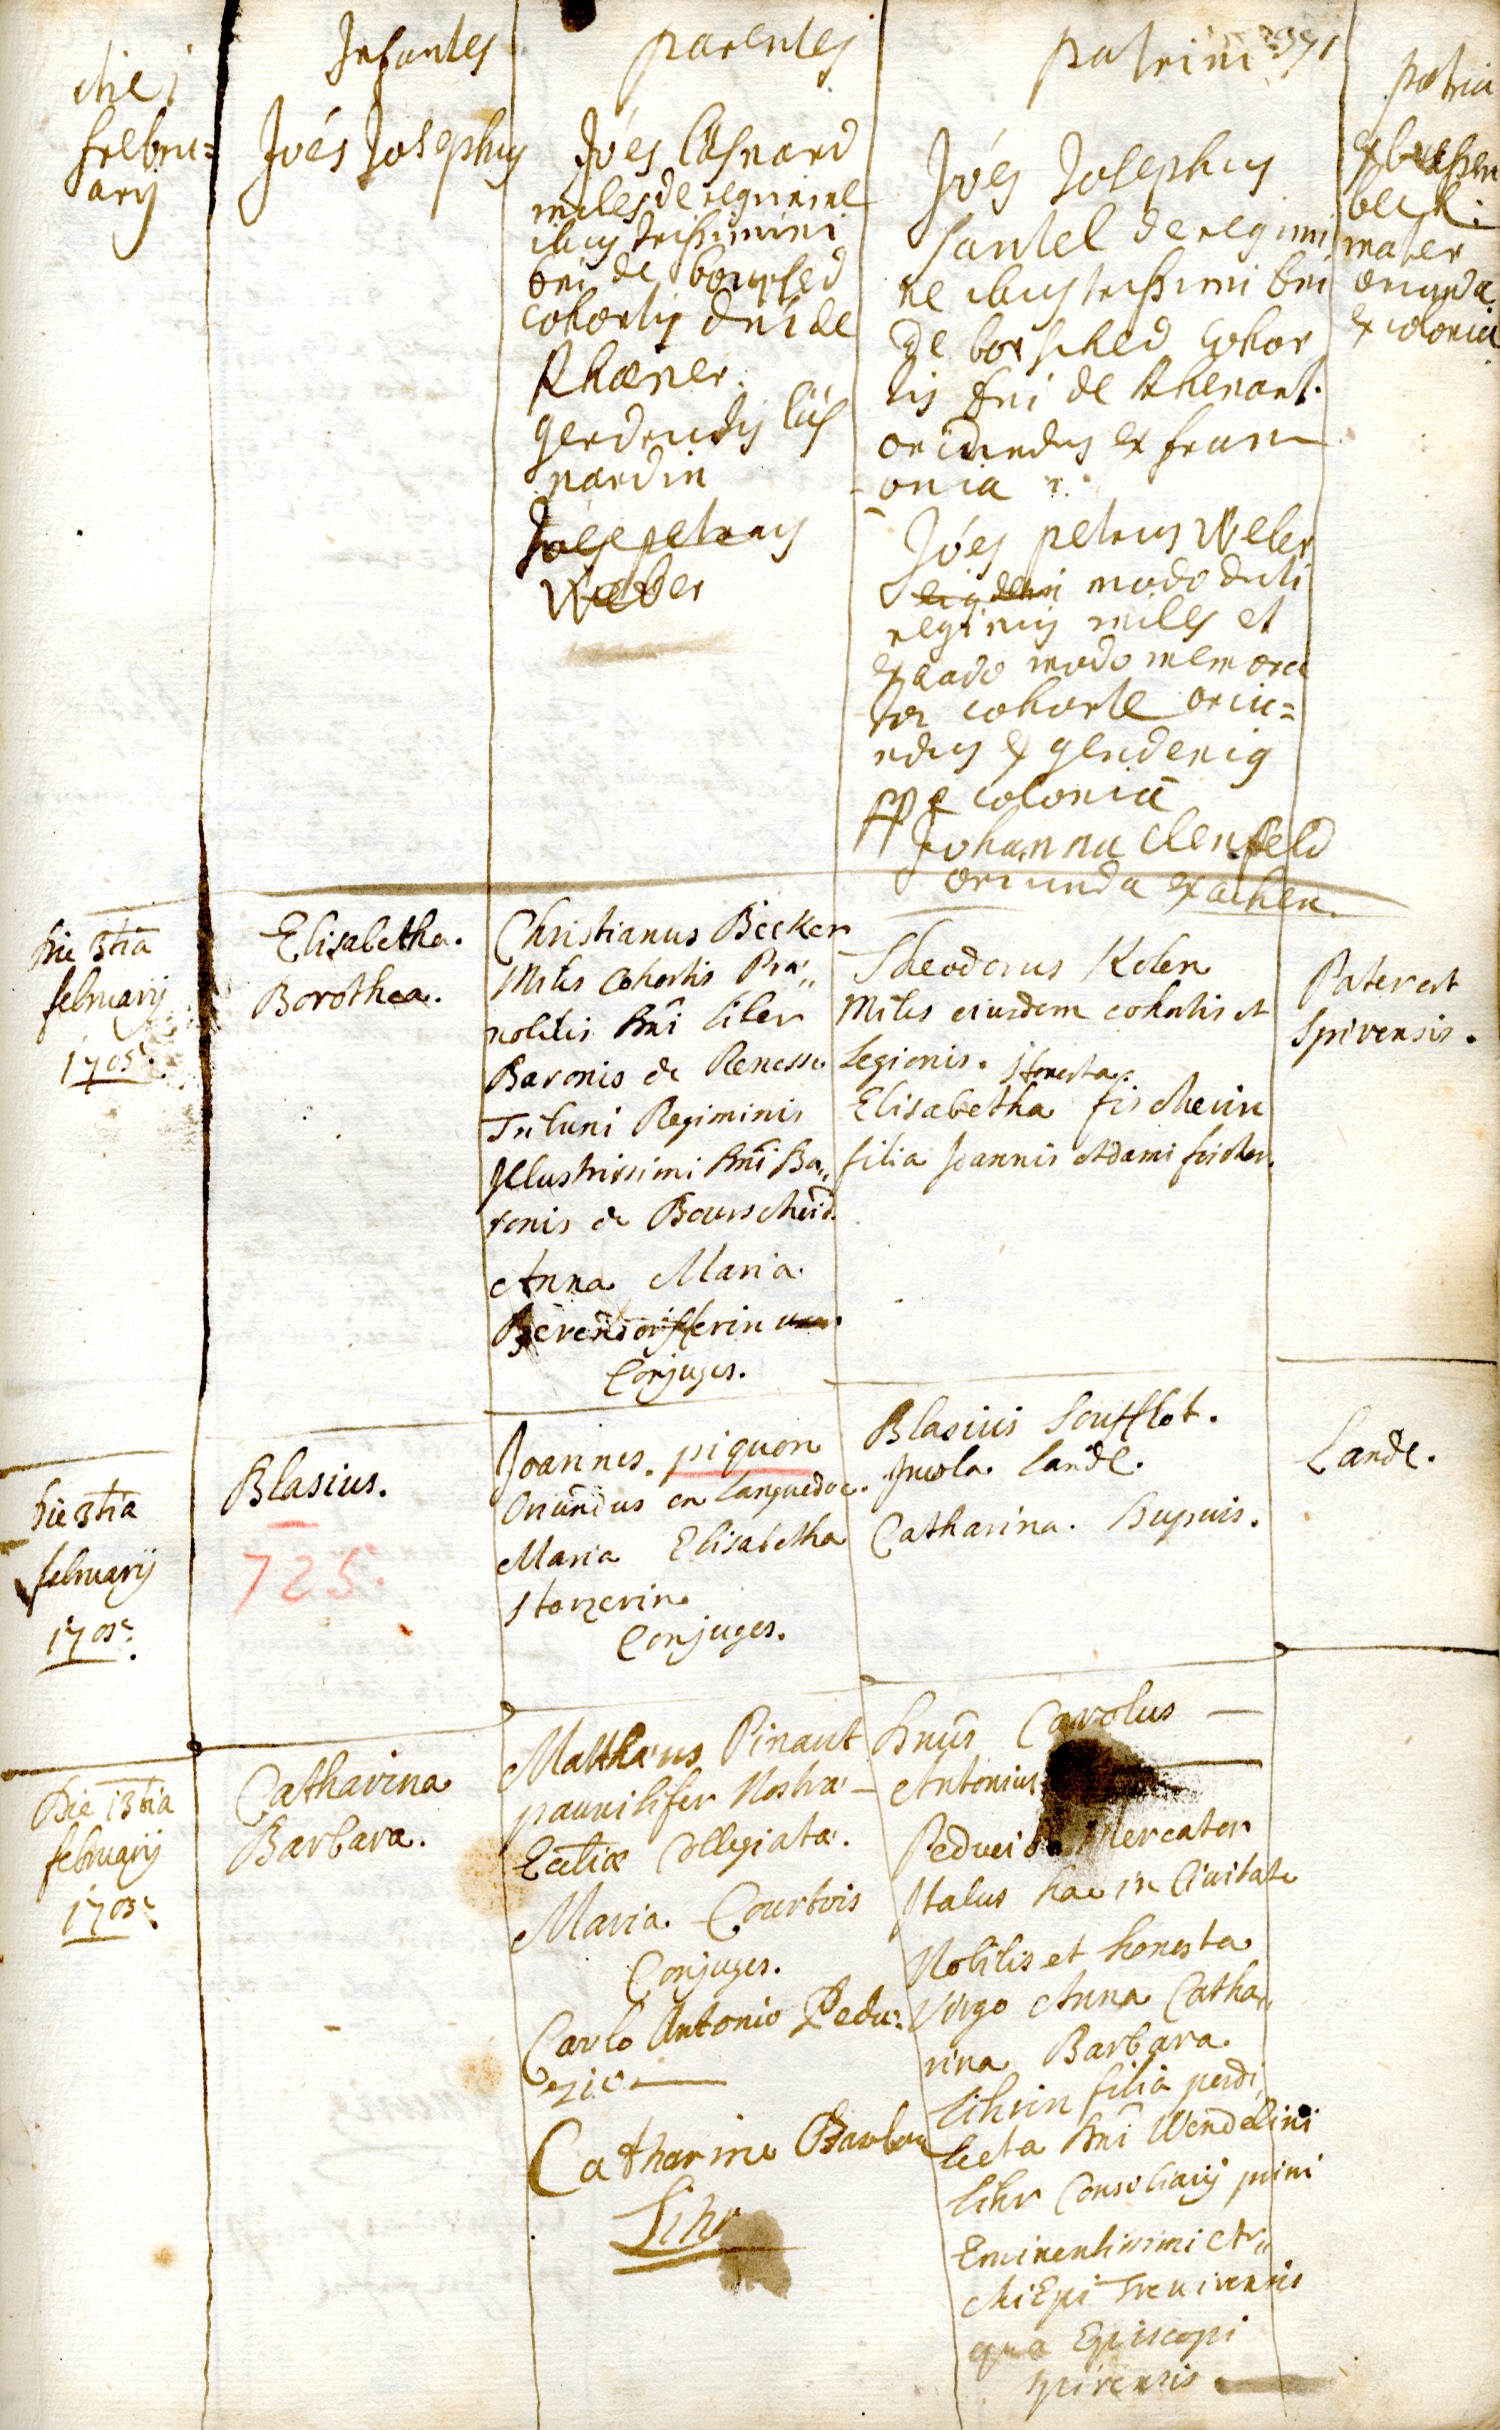 Infantes
parentes
patrini
patria
die i
frebru=
arij
Jóes Josephus
Jóes Cüsnard
miles de regimine
illustrissimi
dni de bourssed
cohortis dni de
Rhæner.
gerdrudis Cüs
nardin
Jóes petrus
Weber
Jóes Josephus
santel de regimi
ne illustrissimi dni
de borsched cohor
tis dni de Rhenart.
oriundus ex fran
onia
Jóes petrus Weber
eiusdem modo dicti
regiminis miles et
ex eado modo memora
ta cohorte oriu=
ndus ex gendenig
ppe coloniã
Johanna Clenfeld
oriunda ex achen.
ex bussen
beck:
mater
oriunda
ex colonia
Die 3tia
februarij
1705.
Elisabetha.
Dorothea.
Christianus Becker
Miles Cohortis Præ,,
nobilis Dni liber
Baronis de Renesse
Tribuni Regiminis
Illustrissimi Dni Ba,,
ronis de Bourscheid.
Anna Maria
Berendorfferin
Conjuges.
Theodorus Kolen
Miles eiusdem cohortis et
Legionis. Honesta
Elisabetha fischerin
filia Joannis Adami fischer.
Pater est
Spirensis.
Die 3tia
februarij
1705.
Blasius.
725.
Joannes. piquon
Oriundus en Languedoc.
Maria Elisabetha
Storzerin
Conjuges.
Blasius Soufflot.
Incola Lande.
Catharina. Dupuis.
Lande.
Die 13tia
februarij
1705.
Catharina
Barbara.
Matthæus Pinaut
pannilifer Nostræ -
Ecctiæ Collegiatæ.
Maria Courtois
Conjuges.
Carlo Antonio Pedu:
zio
Catharine Barbara
Lihr
Dnus Carolus -
Antonius
Peduci Mercator
Italus hac in Civitate
Nobilis et honesta
Virgo Anna Catha,,
rina Barbara
Lihrin filia perdi,
lecta Dni Wendelini
Lihr Consiliarij primi
Eminentissimi Ar,,
chiEpi Trevirensis
qua Episcopi
Spirensis.